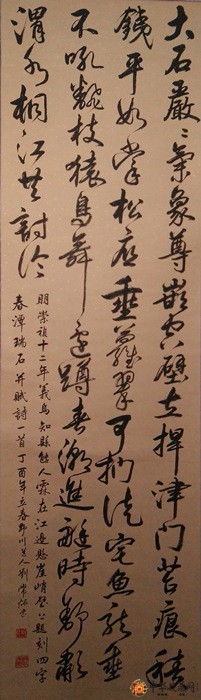 大石嚴〻氣象尊嵌空壁立捍津門苔痕積
錢平如掌松垂蘿翠可捫徙宅魚龍垂
不吼枝猿鳥舞還蹲春潮進艇時
渭水桐江共討論
明崇禎十二年義烏知縣熊人霖在江邊懸崖峭壁上題刻四字
春潭瑞石并賦詩一首丁酉年立春